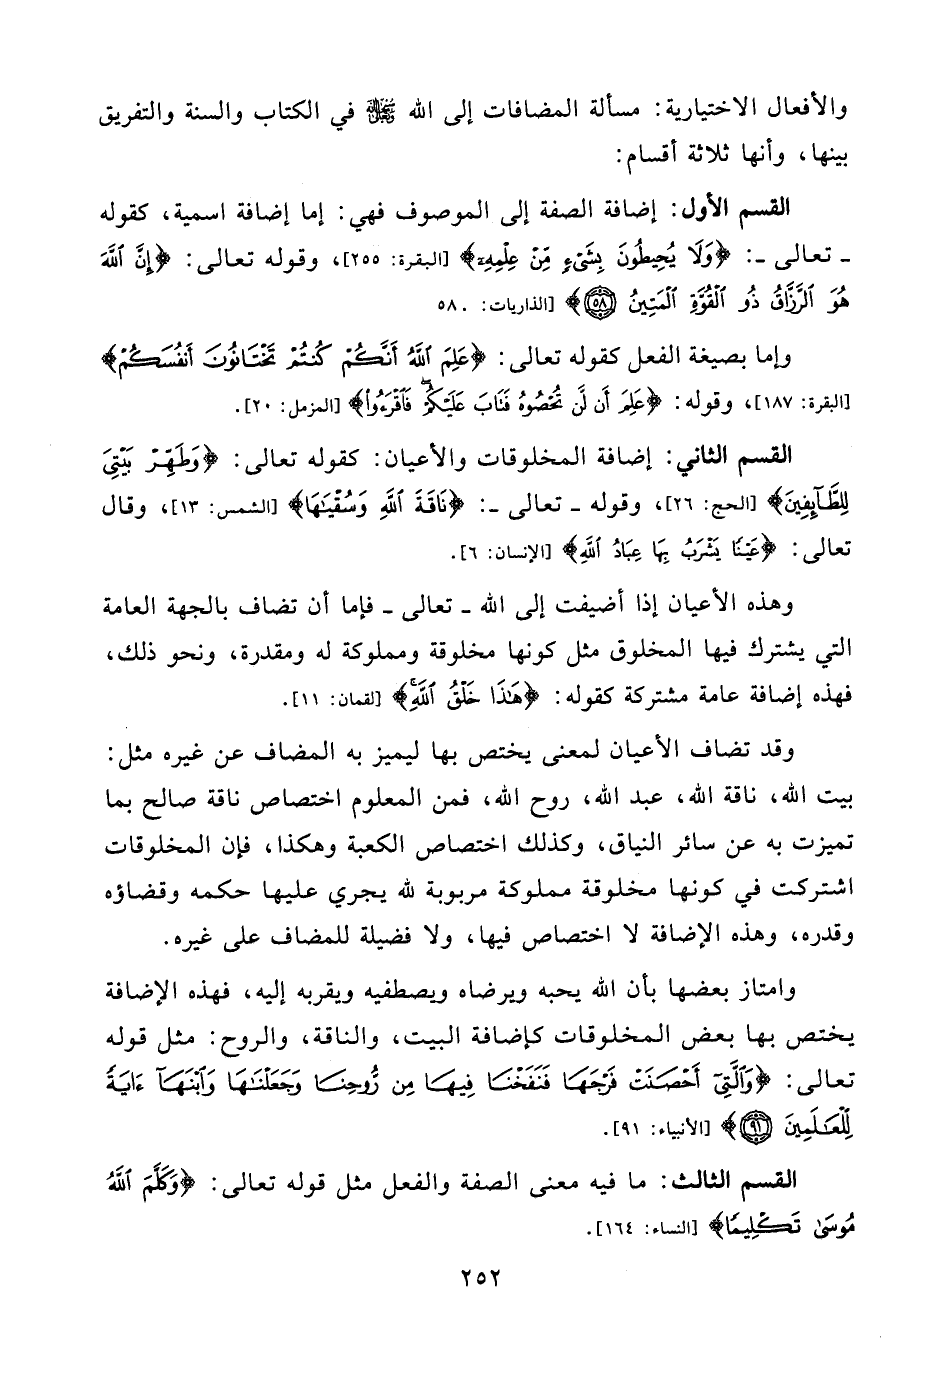 والأفعال الاختيارية: مسألة المضافات إلى الله ﷻ في الكتاب والسنة والتفريق
بينها، وأنها ثلاثة أقسام:
القسم الأول: إضافة الصفة إلى الموصوف فهي: إما إضافة اسمية، كقوله
ـ تعالى ـ: ﴿وَلَا يُحِيطُونَ بِشَىْءٍ مِّنْ عِلْمِهِۦٓ﴾ [البقرة: ٢٥٥]، وقوله تعالى: ﴿إِنَّ ٱللَّهَ
هُوَ ٱلرَّزَّاقُ ذُو ٱلْقُوَّةِ ٱلْمَتِينُ ۝٥٨﴾ [الذاريات: ٥٨.
وإما بصيغة الفعل كقوله تعالى: ﴿عَلِمَ ٱللَّهُ أَنَّكُمْ كُنتُمْ تَخْتَانُونَ أَنفُسَكُمْ﴾
[البقرة: ١٨٧]، وقوله: ﴿عَلِمَ أَن لَّن تُحْصُوهُ فَتَابَ عَلَيْكُمْ ۖ فَٱقْرَءُوا۟﴾ [المزمل: ٢٠].
القسم الثاني: إضافة المخلوقات والأعيان: كقوله تعالى: ﴿وَطَهِّرْ بَيْتِىَ
لِلطَّآئِفِينَ﴾ [الحج: ٢٦]، وقوله ـ تعالى ـ: ﴿نَاقَةَ ٱللَّهِ وَسُقْيَـٰهَا﴾ [الشمس: ١٣]، وقال
تعالى: ﴿عَيْنًا يَشْرَبُ بِهَا عِبَادُ ٱللَّهِ﴾ [الإنسان: ٦].
وهذه الأعيان إذا أضيفت إلى الله ـ تعالى ـ فإما أن تضاف بالجهة العامة
التي يشترك فيها المخلوق مثل كونها مخلوقة ومملوكة له ومقدرة، ونحو ذلك،
فهذه إضافة عامة مشتركة كقوله: ﴿هَـٰذَا خَلْقُ ٱللَّهِ﴾ [لقمان: ١١].
وقد تضاف الأعيان لمعنى يختص بها ليميز به المضاف عن غيره مثل:
بيت الله، ناقة الله، عبد الله، روح الله، فمن المعلوم اختصاص ناقة صالح بما
تميزت به عن سائر النياق، وكذلك اختصاص الكعبة وهكذا، فإن المخلوقات
اشتركت في كونها مخلوقة مملوكة مربوبة لله يجري عليها حكمه وقضاؤه
وقدره، وهذه الإضافة لا اختصاص فيها، ولا فضيلة للمضاف على غيره.
وامتاز بعضها بأن الله يحبه ويرضاه ويصطفيه ويقربه إليه، فهذه الإضافة
يختص بها بعض المخلوقات كإضافة البيت، والناقة، والروح: مثل قوله
تعالى: ﴿وَٱلَّتِىٓ أَحْصَنَتْ فَرْجَهَا فَنَفَخْنَا فِيهَا مِن رُّوحِنَا وَجَعَلْنَـٰهَا وَٱبْنَهَآ ءَايَةً
لِّلْعَـٰلَمِينَ ۝٩١﴾ [الأنبياء: ٩١].
القسم الثالث: ما فيه معنى الصفة والفعل مثل قوله تعالى: ﴿وَكَلَّمَ ٱللَّهُ
مُوسَىٰ تَكْلِيمًا﴾ [النساء: ١٦٤].
٢٥٢